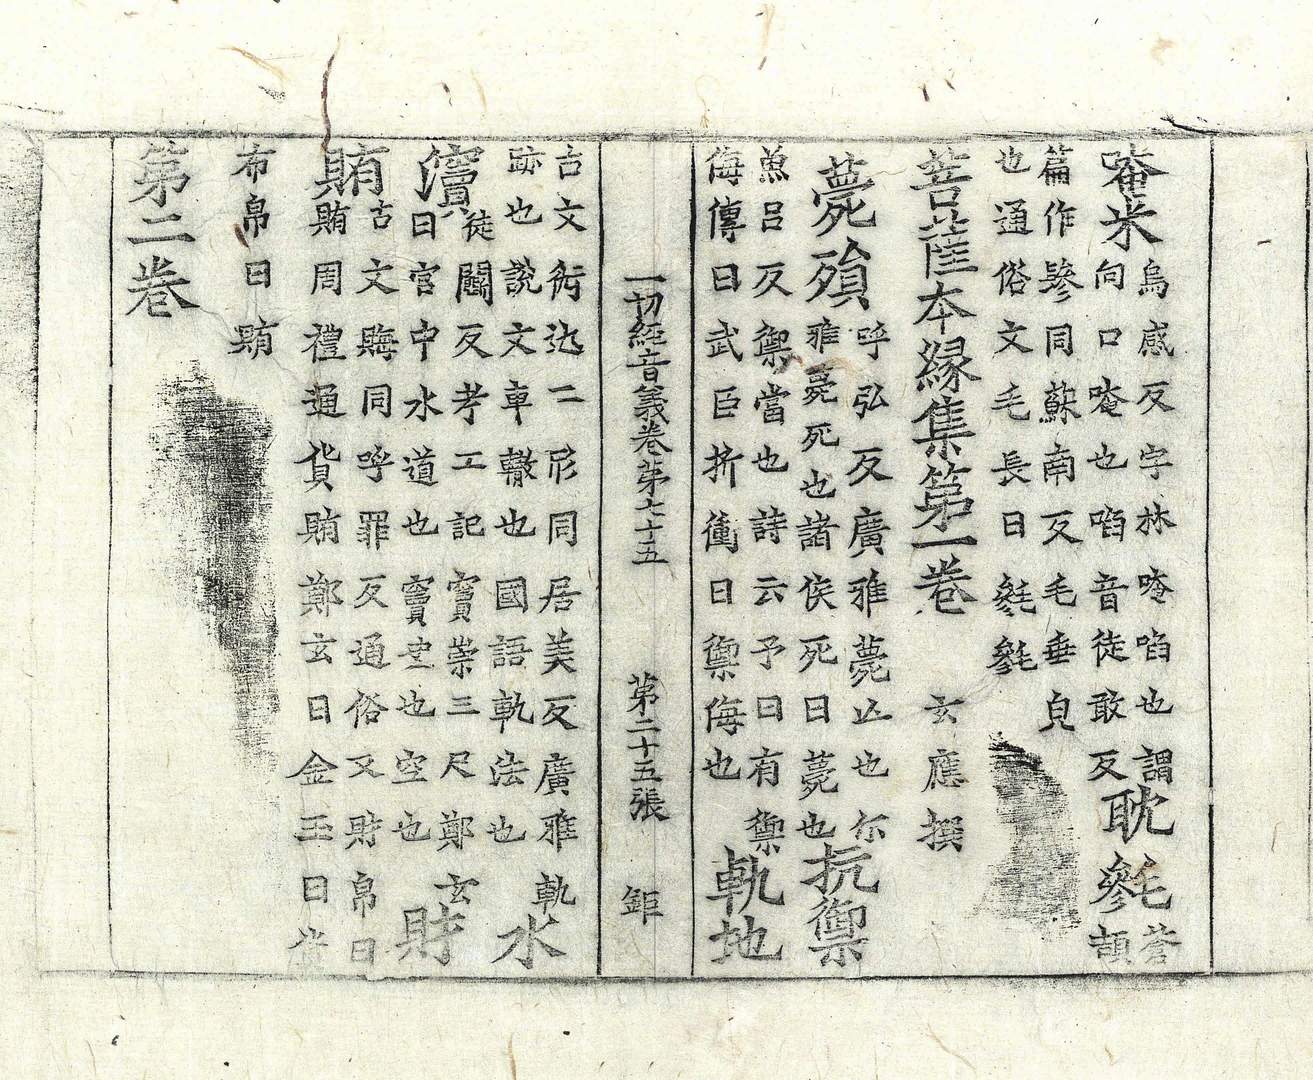 唵米烏感反字林唵啗也謂
向口唵也啗音徒敢反耽毿蒼頡
篇作㲯同蘇南反毛垂皃
也通俗文毛長曰毿毿
菩薩本緣集第一卷 玄應撰
薨殞呼弘反廣雅薨亡也尒
雅薨死也諸侯死曰薨也抗禦
魚呂反禦當也詩云予曰有禦
侮傳曰武臣折衝曰禦侮也軌地
一切經音義卷第七十五 第二十五張 鉅
古文衖迒二形同居美反廣雅軌
跡也說文車轍也國語軌法也水
瀆徒闘反考工記竇崇三尺鄭玄
曰宮中水道也竇空也空也財
賄古文晦同呼罪反通俗文財帛曰
賄周禮通貨賄鄭玄曰金玉曰貨
布帛曰賄
第二卷